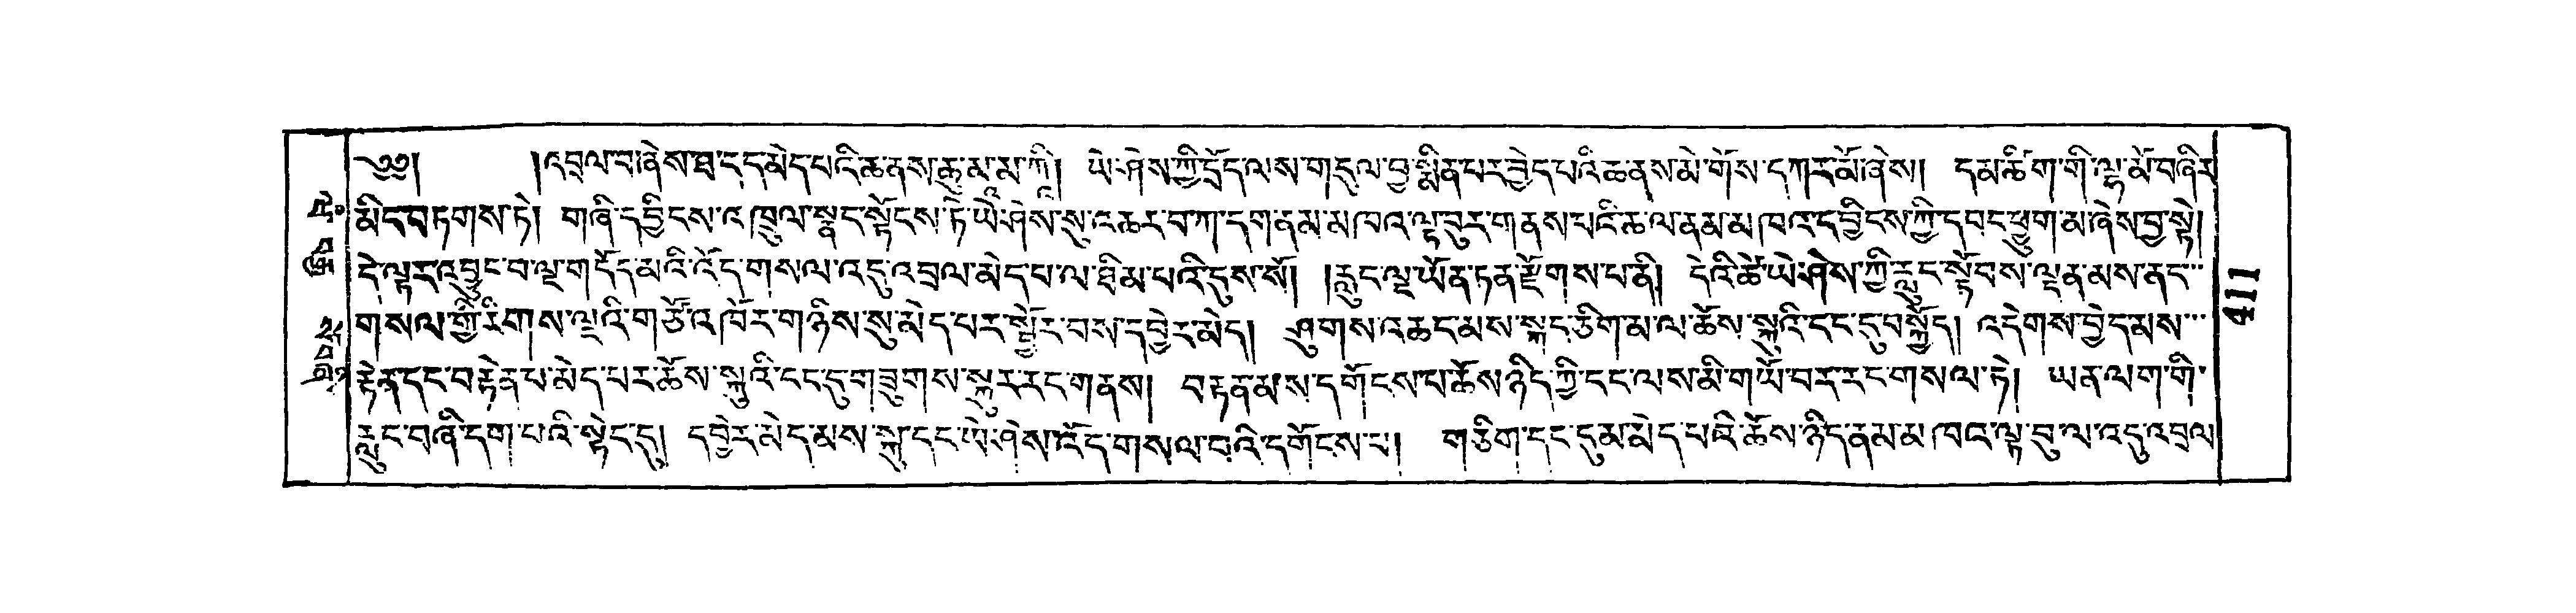 ༄༅། །འབྲལ་བ་ཞེས་ཐ་དད་མེད་པའི་ཆ་ནས་རྒྱུ་མཱ་མ་ཀཱི། ཡེ་ཤེས་ཀྱི་དྲོད་ལས་གདུལ་བྱ་སྨིན་པར་བྱེད་པའི་ཆ་ནས་མེ་གོས་དཀར་མོ་ཞེས། དམ་ཚིག་གི་ལྷ་མོ་བཞིར་
མིང་བཏགས་ཏེ། གཞི་དབྱིངས་འཁྲུལ་སྣང་སྟོངས་ཏེ་ཡེ་ཤེས་སུ་འཆར་བ་ཀ་དག་ནམ་མཁའ་ལྟ་བུར་གནས་པའི་ཆ་ལ་ནམ་མཁའ་དབྱིངས་ཀྱི་དབང་ཕྱུག་མ་ཞེས་བྱ་སྟེ།
དེ་ལྟར་འབྱུང་བ་ལྔ་གདོད་མའི་འོད་གསལ་འདུ་འབྲལ་མེད་པ་ལ་ཐིམ་པའི་དུས་སོ། །རླུང་ལྔ་ཡོན་ཏན་རྫོགས་པ་ནི། དེའི་ཚེ་ཡེ་ཤེས་ཀྱི་རླུང་སྟོབས་ལྡན་མས་ནང་
གསལ་གྱི་རིགས་ལྔའི་གཙོ་འཁོར་གཉིས་སུ་མེད་པར་སྦྱོར་བས་དབྱེར་མེད། ཤུགས་འཆང་མས་སྐད་ཅིག་མ་ལ་ཆོས་སྐུའི་ངང་དུ་བསྐྱོད། འདེགས་བྱེད་མས་
རྟེན་དང་བརྟེན་པ་མེད་པར་ཆོས་སྐུའི་ངང་དུ་གཟུགས་སྐུར་རང་གནས། བརྟན་མས་དགོངས་པ་ཆོས་ཉིད་ཀྱི་ངང་ལས་མི་གཡོ་བར་རང་གསལ་ཏེ། ཡན་ལག་གི་
རླུང་བཞི་དག་པའི་སྟེང་དུ། དབྱེར་མེད་མས་སྐུ་དང་ཡེ་ཤེས་འོད་གསལ་བའི་དགོངས་པ། གཅིག་དང་དུ་མ་མེད་པའི་ཆོས་ཉིད་ནམ་མཁའ་ལྟ་བུ་ལ་འདུ་འབྲལ